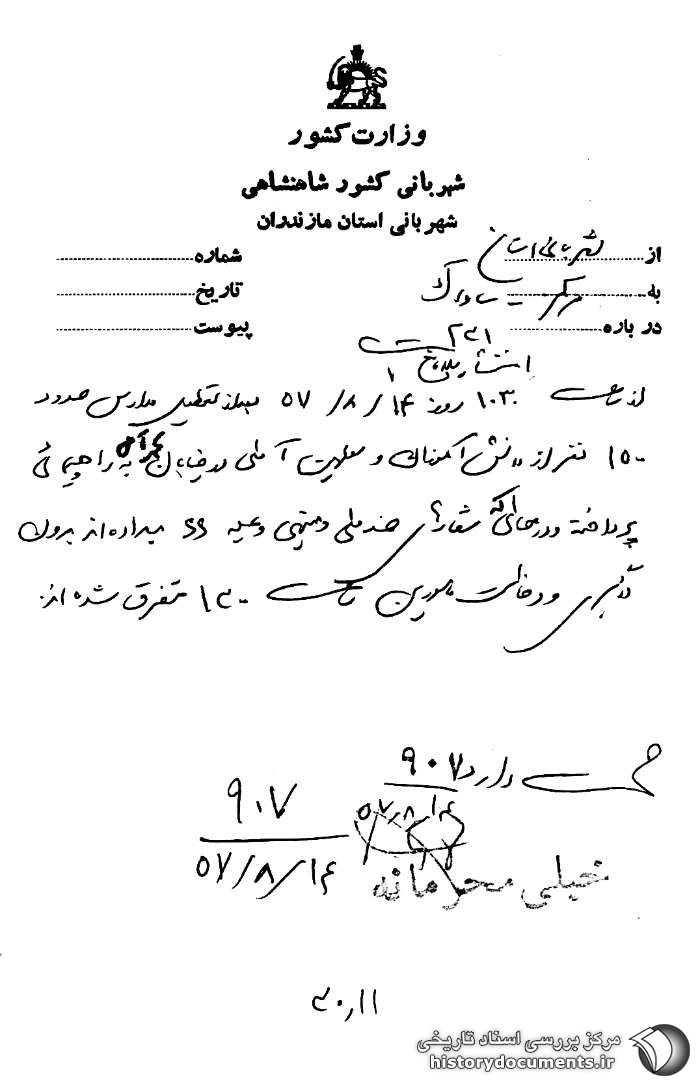 وزارت کشور
شهربانی کشور شاهنشاهی
شهربانی استان مازندران
از شهربانی استان
شماره
به مرکز – ساواک
تاریخ
در باره
پیوست
از ساعت ۱۰۳۰ روز ۵۷/۸/۱۴ بعد از تعطیل مدارس حدود
۱۵۰ نفر از دانش آموزان و آملی در خیابان به راهپیمائی
پرداخته و در حالی که شعارهای ضد ملی و میهنی و علیه میداده‌اند بدون
درگیری و دخالت مامورین ساعت ۱۲۰۰ متفرق شده‌اند.
وارده ۹۰۷
۵۷/۸/۱۴
۹۰۷
۵۷/۸/۱۴
خیلی محرمانه
۲۰٫۱۱
مرکز بررسی اسناد تاریخی
historydocuments.ir